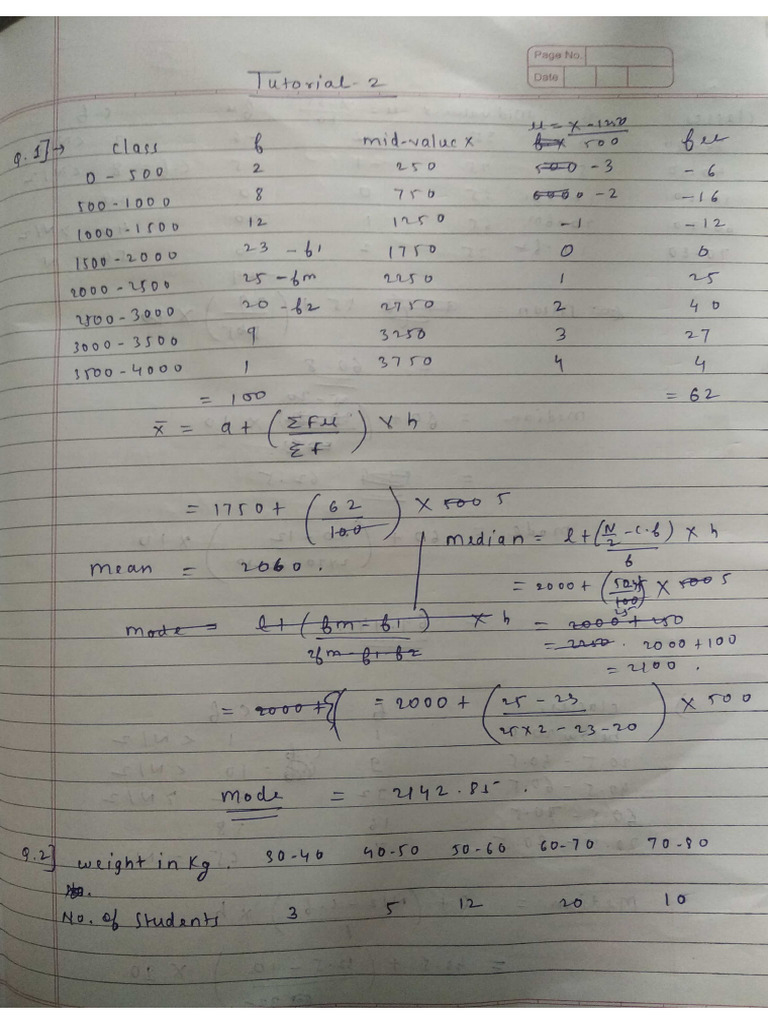 Page No.
Date
Tutorial-2
Q.1]→ class f mid-value x u = x-1250 / 500 fu
0-500 2 250 -3 -6
500-1000 8 750 -2 -16
1000-1500 12 1250 -1 -12
1500-2000 23 - f1 1750 0 0
2000-2500 25 - fm 2250 1 25
2500-3000 20 - f2 2750 2 40
3000-3500 9 3250 3 27
3500-4000 1 3750 4 4
= 100 = 62
x̄ = a + (ΣFu / ΣF) × h
= 1750 + (62 / 100) × 500 5
mean = 2060.
median = l + (N/2 - c.f) / f × h
= 2000 + × 500 5
mode = l + (fm - f1) / 2fm - f1 - f2 × h
= 2000 + 250
= 2250. 2000 + 100
= 2100.
= 2000 + { = 2000 + (25 - 23 / 25×2 - 23 - 20) × 500
Mode = 2142.85.
Q.2] weight in Kg. 30-40 40-50 50-60 60-70 70-80
No.
No. of Students 3 5 12 20 10